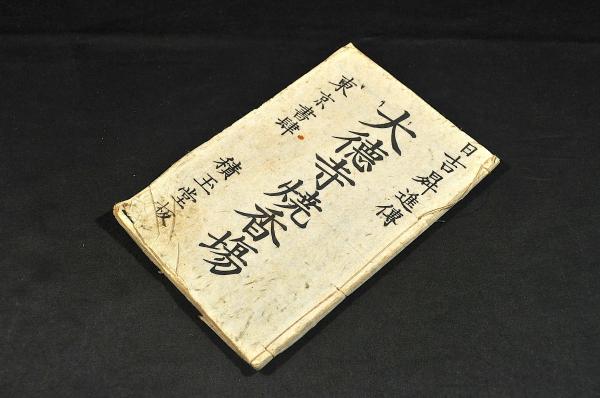 日吉昇進傳
大徳寺焼香場
東京書肆
積玉堂板